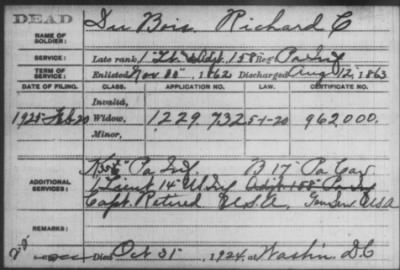 DEAD
NAME OF SOLDIER: Du Bois Richard C
SERVICE: Late rank, 1" Lt. & Adjt., 158 Reg't Pa Inf
TERM OF SERVICE: Enlisted Nov 1862 Discharged Aug 12, 1863
DATE OF FILING. CLASS. APPLICATION NO. LAW. CERTIFICATE NO.
Invalid,
1925 Feb 20 Widow, 1229 732 5-1-20 962,000.
Minor,
Pa Inf. B 17" Pa Cav
ADDITIONAL SERVICES: 1" Lieut 14" US Inf Adjt 158" Pa Inf
Capt. Retired U.S.A., Gen Serv USA
REMARKS:
Died Oct 31, 1924, at Washn. D.C